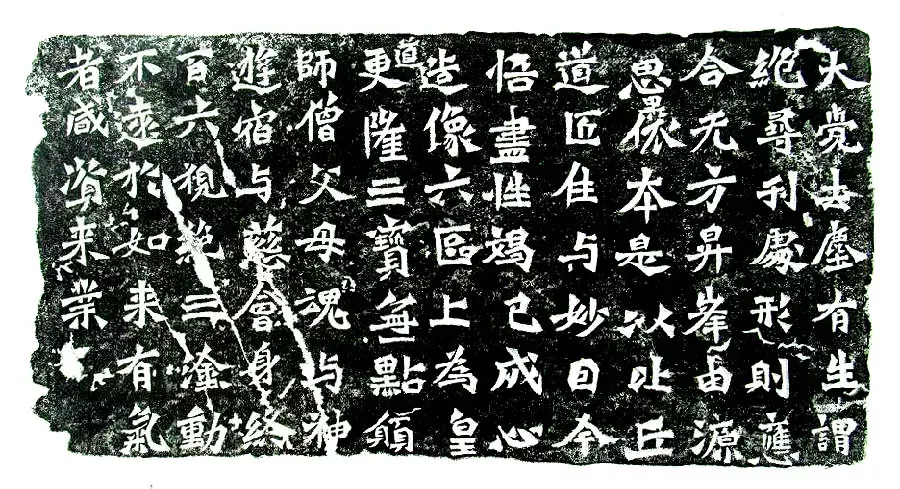 大覺去塵有生謂
絕尋刊處形則應
合无方昇峯由源
思本是以比丘
道匠住与妙日今
悟盡性竭已成心
造像六區上為皇
道更隆三寶無點願
師僧父母魂与神
遊宿与慈會身終
百六視絕三塗動
不遠於如来有氣
者咸資来業